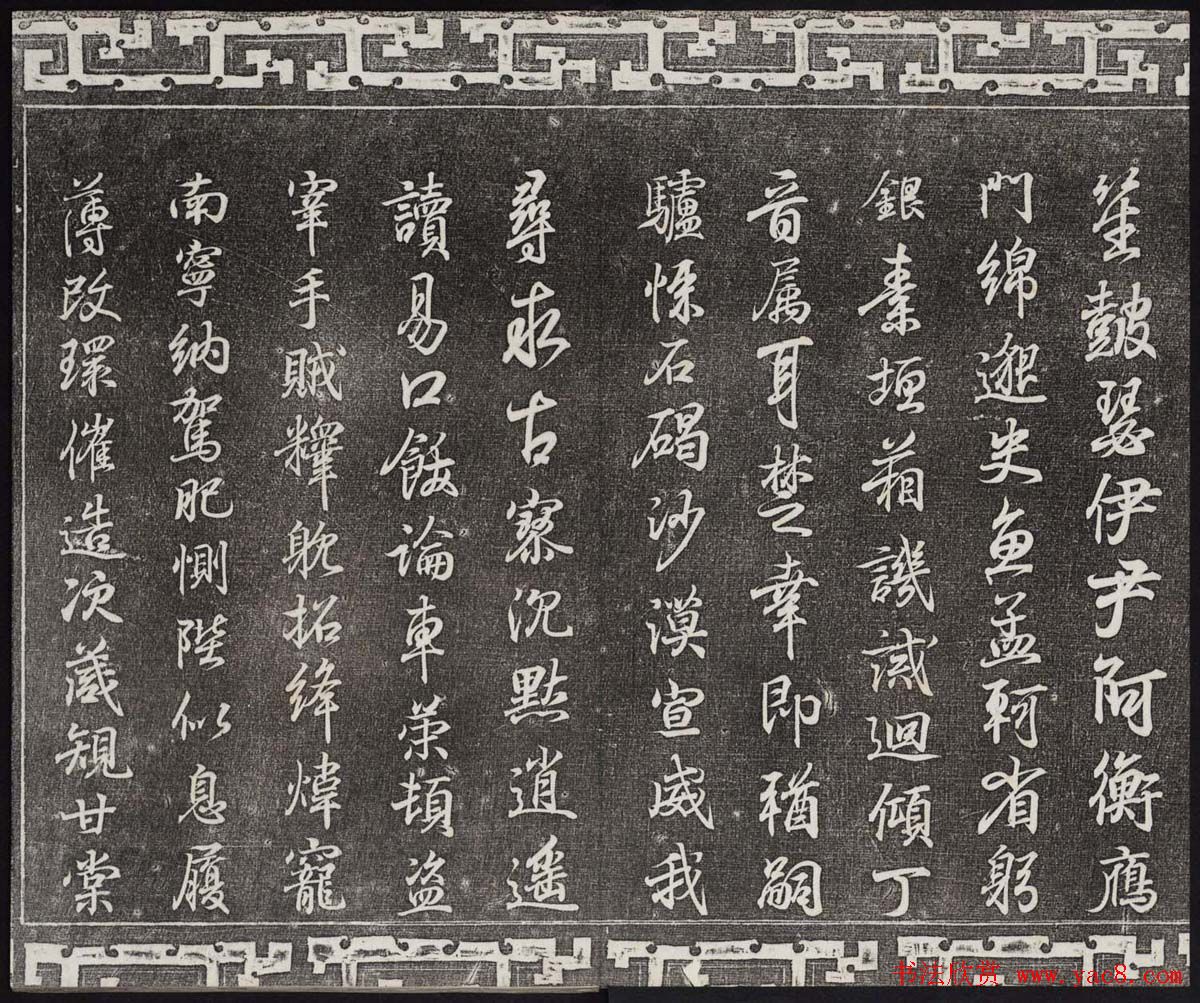 笙鼓瑟伊尹阿衡鴈
門綿邈史魚孟軻省躬
銀素垣葙譏誡迴傾丁
音属耳焚幸即猶嗣
驢悚石碣沙漠宣威我
尋求古寮沉默逍遥
讀易口飫論車榮頓盗
宰手賊糧躭招絳煒寵
南寧納駕肥惻陛似息履
薄改環催造次葴規甘棠
书法欣赏 www.yac8.com